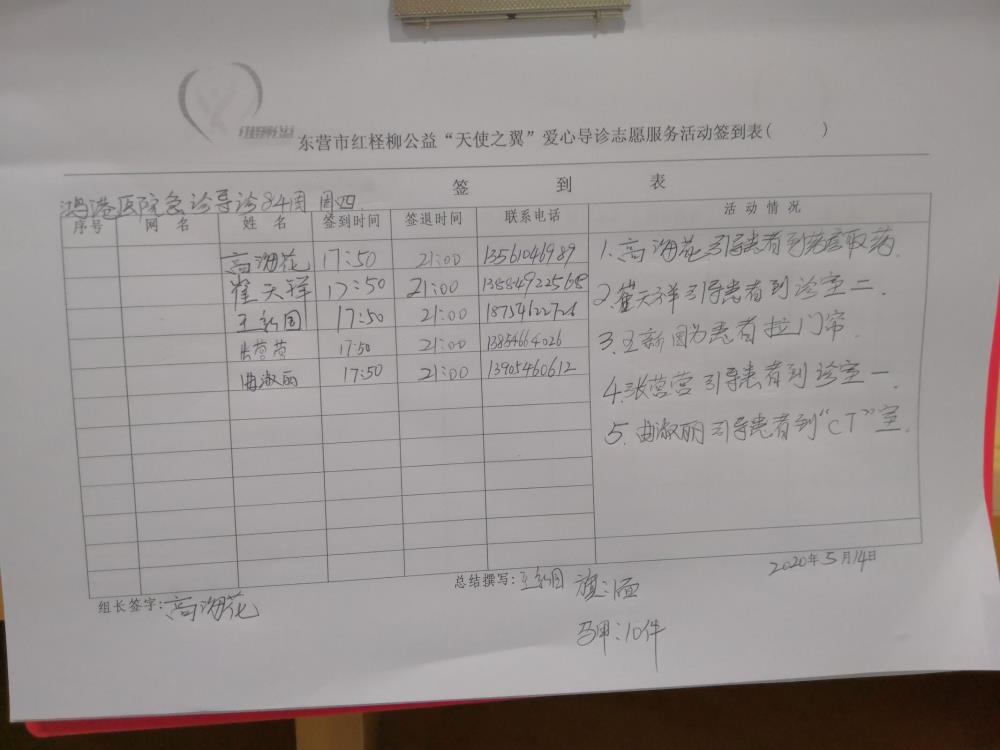 东营市红柽柳公益“天使之翼”爱心导诊志愿服务活动签到表(　　)
签 到 表
鸿港医院急诊导诊84周 周四.
序号 网 名 姓 名 签到时间 签退时间 联系电话 活 动 情 况
高海花 17:50 21:00 13561046989
崔天祥 17:50 21:00 13884922568
王新国 17:50 21:00 18754622726
张营营 17:50 21:00 1385464026
曲淑丽 17:50 21:00 13905460612
1.高海花引导患者到药房取药.
2.崔天祥引导患者到诊室二.
3.王新国为患者拉门帘.
4.张营营引导患者到诊室一.
5.曲淑丽引导患者到“CT”室.
2020年5月14日
组长签字:高海花
总结撰写:王新国 旗:1面
马甲:10件